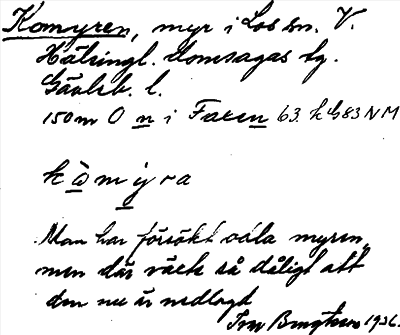 Komyren, myr i Los sn. V.
Hälsingl. domsagas tg.
Gävleb. l.
150 m O n i Faxen 63. h G83 NM
kòmỳra
Man har försökt odla myren,
men där växte så dåligt att
den nu är nedlagt
Bengtsson 1936.